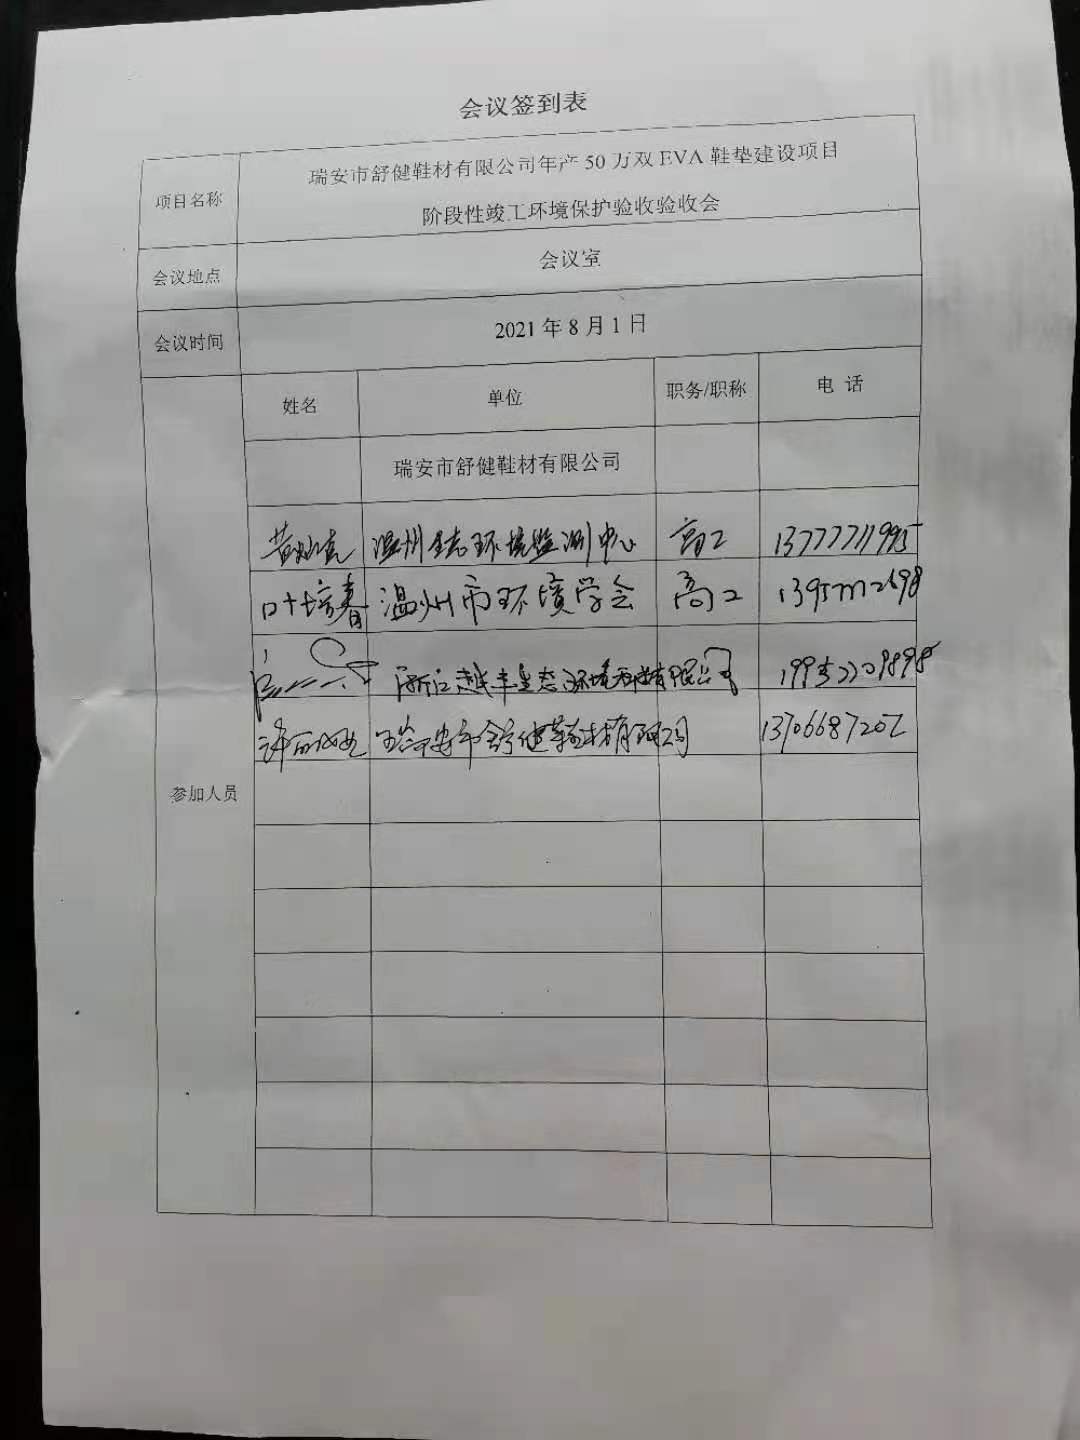 会议签到表
项目名称
瑞安市舒健鞋材有限公司年产 50 万双 EVA 鞋垫建设项目
阶段性竣工环境保护验收验收会
会议地点
会议室
会议时间
2021 年 8 月 1 日
参加人员
姓名 单位 职务/职称 电 话
瑞安市舒健鞋材有限公司
温州生态环境监测中心 高工 13777711995
叶培春 温州市环境学会 高工
有限公司
许 瑞安市舒健鞋材有限公司 13706687202